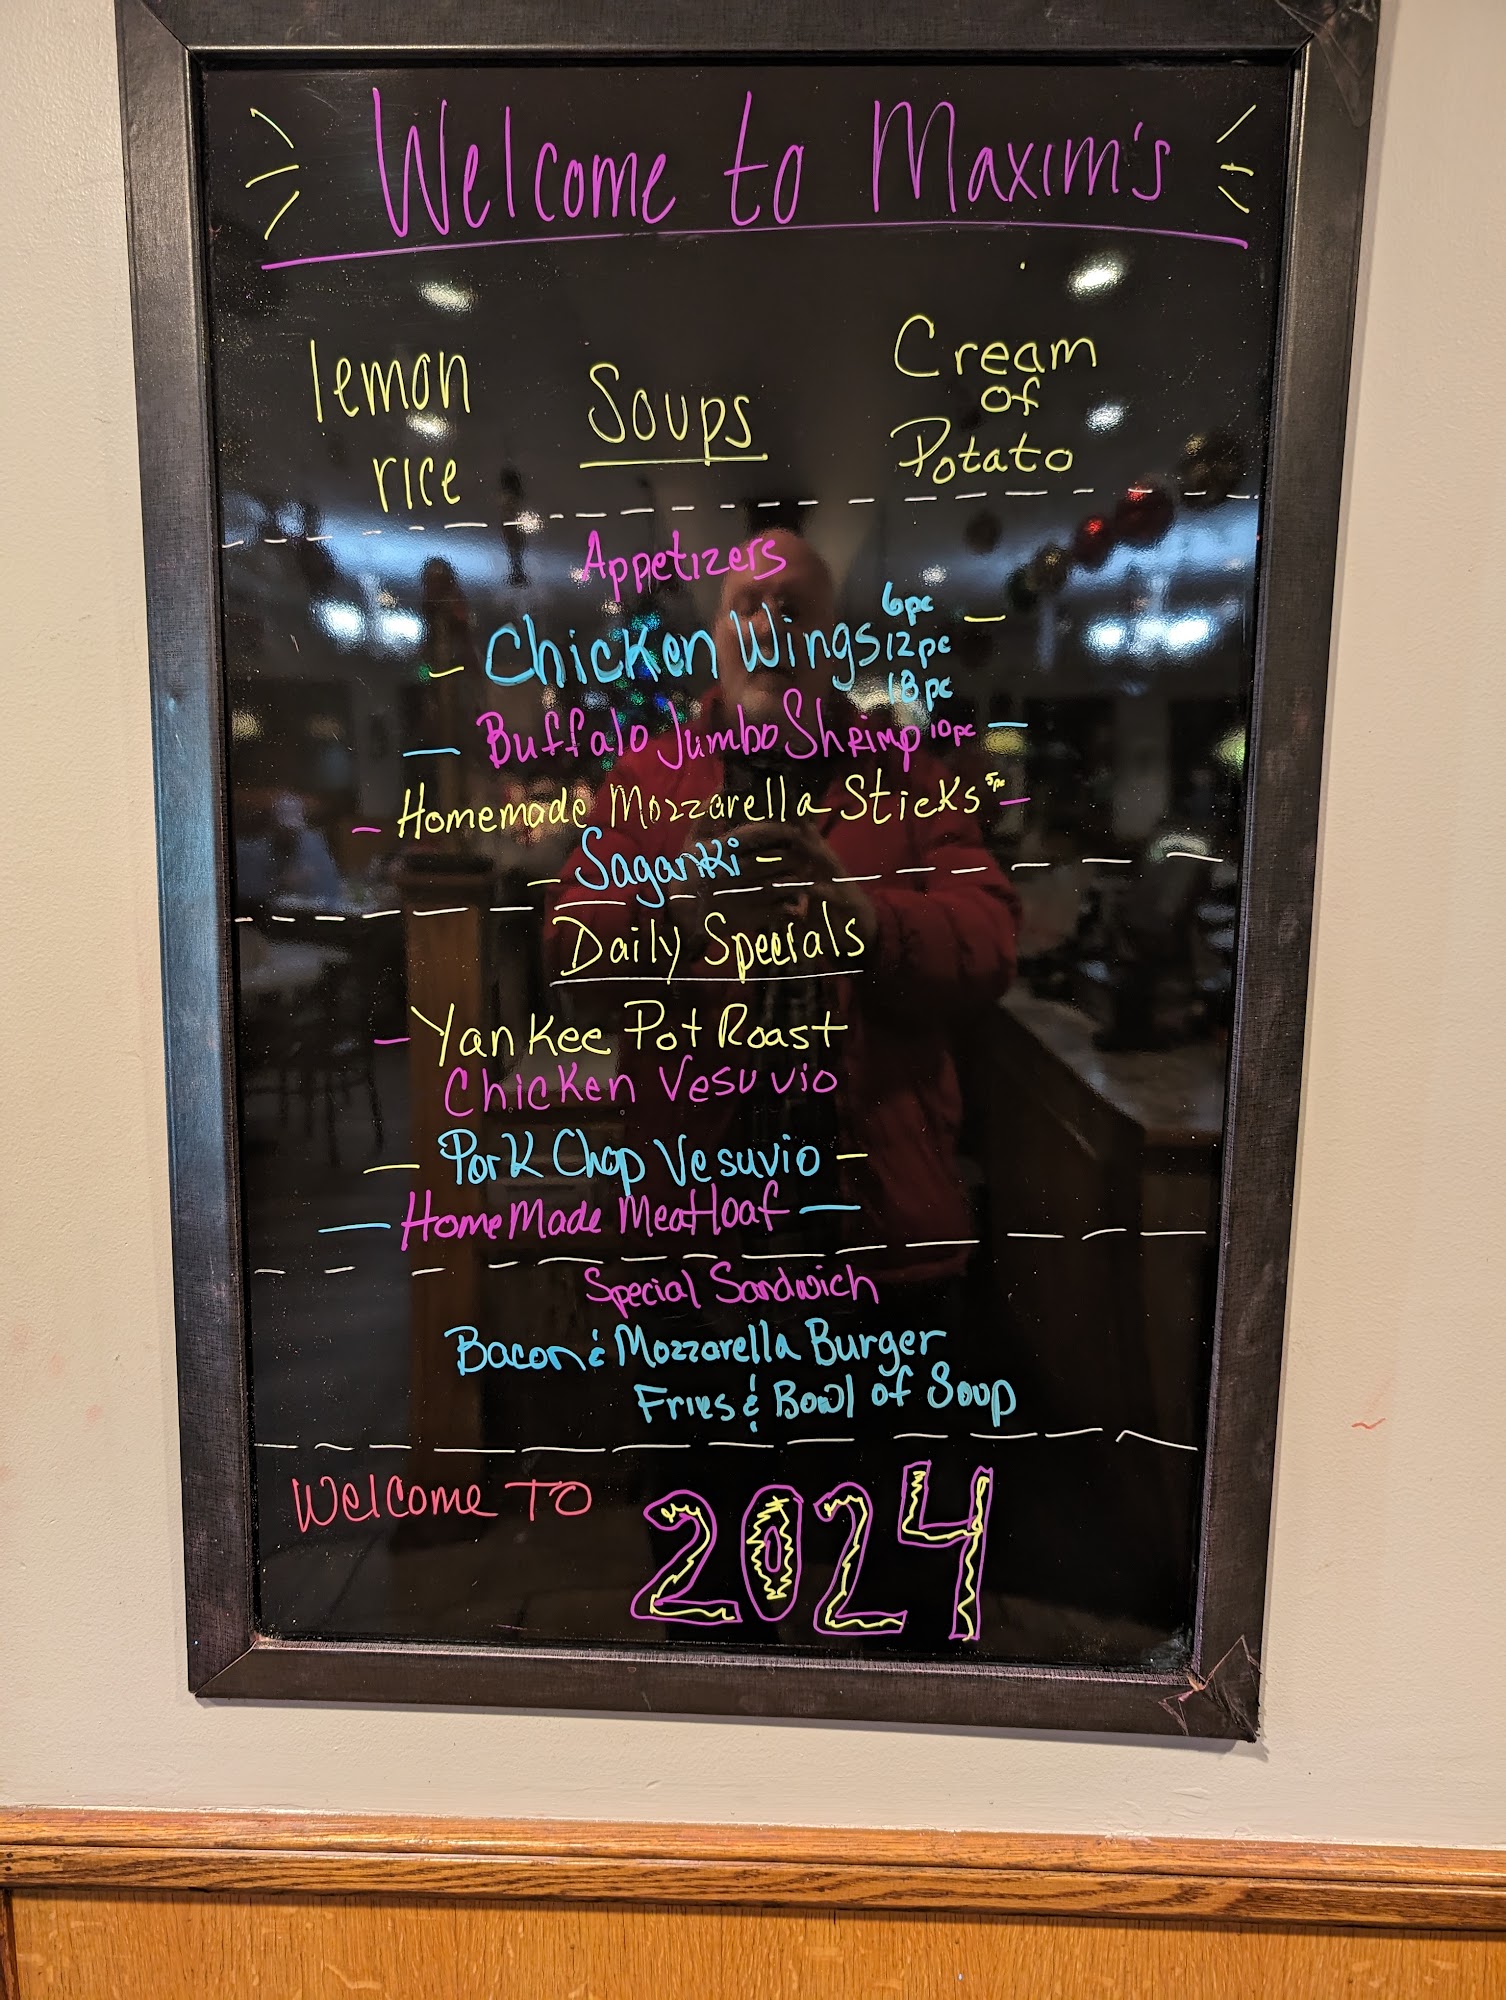 Welcome to Maxim's
lemon
rice
Soups
Cream
of
Potato
Appetizers
Chicken Wings 6pc
12pc
18pc
Buffalo Jumbo Shrimp 10pc
Homemade Mozzarella Sticks 5pc
Saganki
Daily Specials
Yankee Pot Roast
Chicken Vesuvio
Pork Chop Vesuvio
HomeMade Meatloaf
Special Sandwich
Bacon & Mozzarella Burger
Fries & Bowl of Soup
Welcome TO 2024